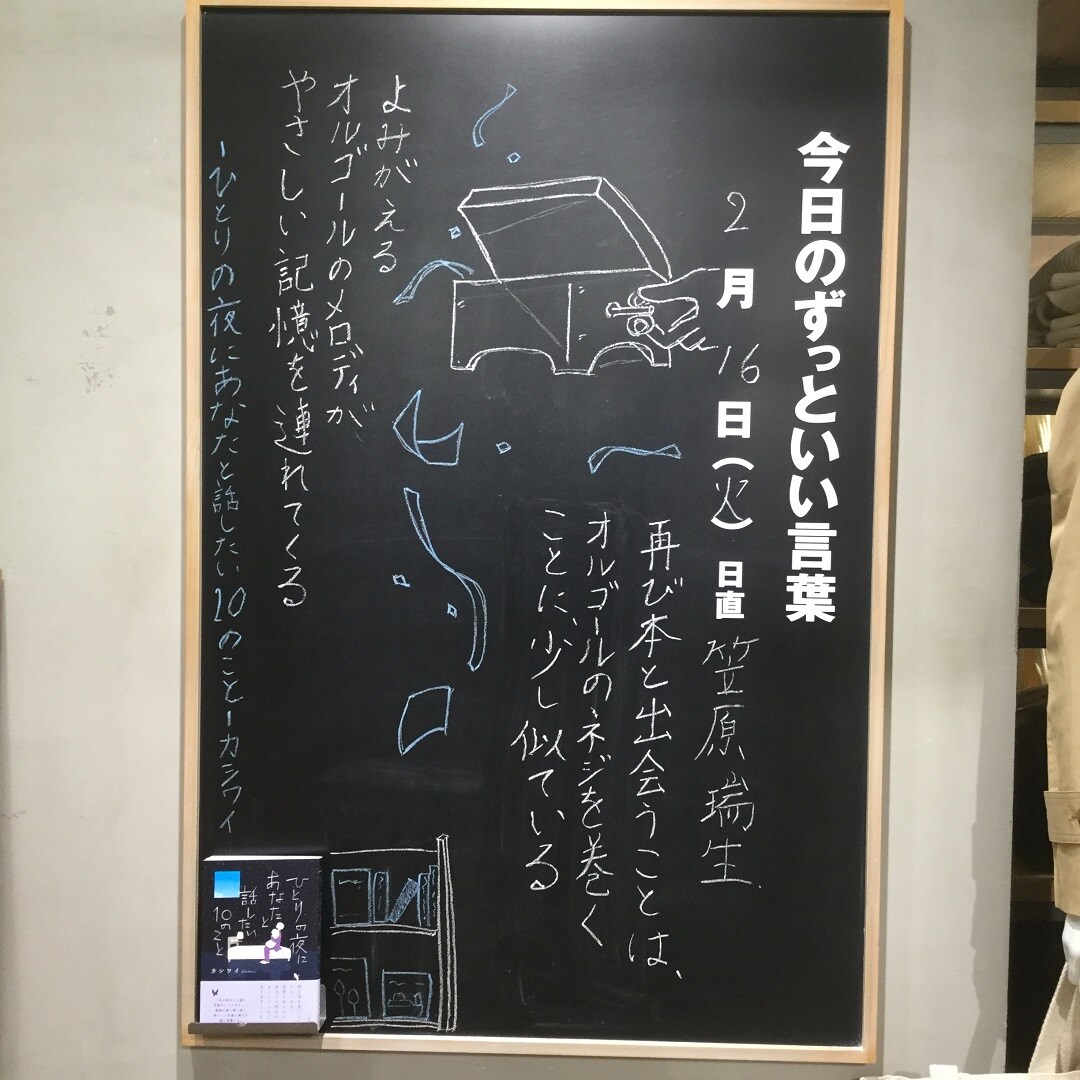 今日のずっといい言葉
2月16日(火) 日直 笠原瑞生
再び本と出会うことは、
オルゴールのネジを巻く
ことに、少し似ている
よみがえる
オルゴールのメロディが、
やさしい記憶を連れてくる
-ひとりの夜にあなたと話したい10のこと- カシワイ
ひとりの夜に
あなたと
話したい
10のこと
カシワイ